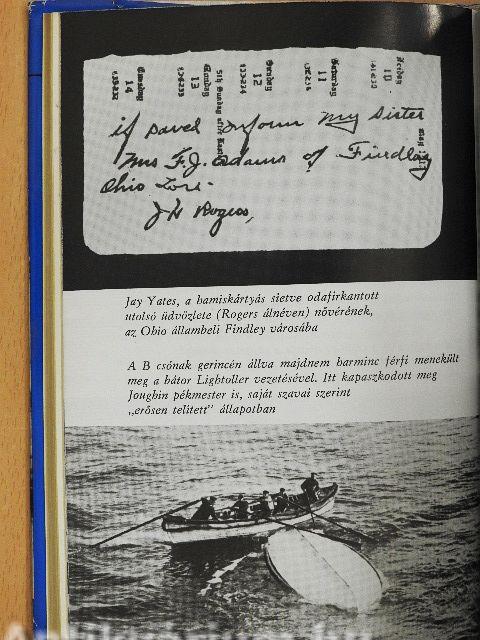 Friday
10
Saturday
11
Sunday
12
5th Sunday after Easter
Monday
13
Tuesday
14
if saved inform my sister
Mrs F.J. Adams of Findlay
Ohio Lost.
J H Rogers,
Jay Yates, a hamiskártyás sietve odafirkantott
utolsó üdvözlete (Rogers álnéven) nővérének,
az Ohio állambeli Findley városába
A B csónak gerincén állva majdnem harminc férfi menekült
meg a bátor Lightoller vezetésével. Itt kapaszkodott meg
Joughin pékmester is, saját szavai szerint
„erősen telített" állapotban